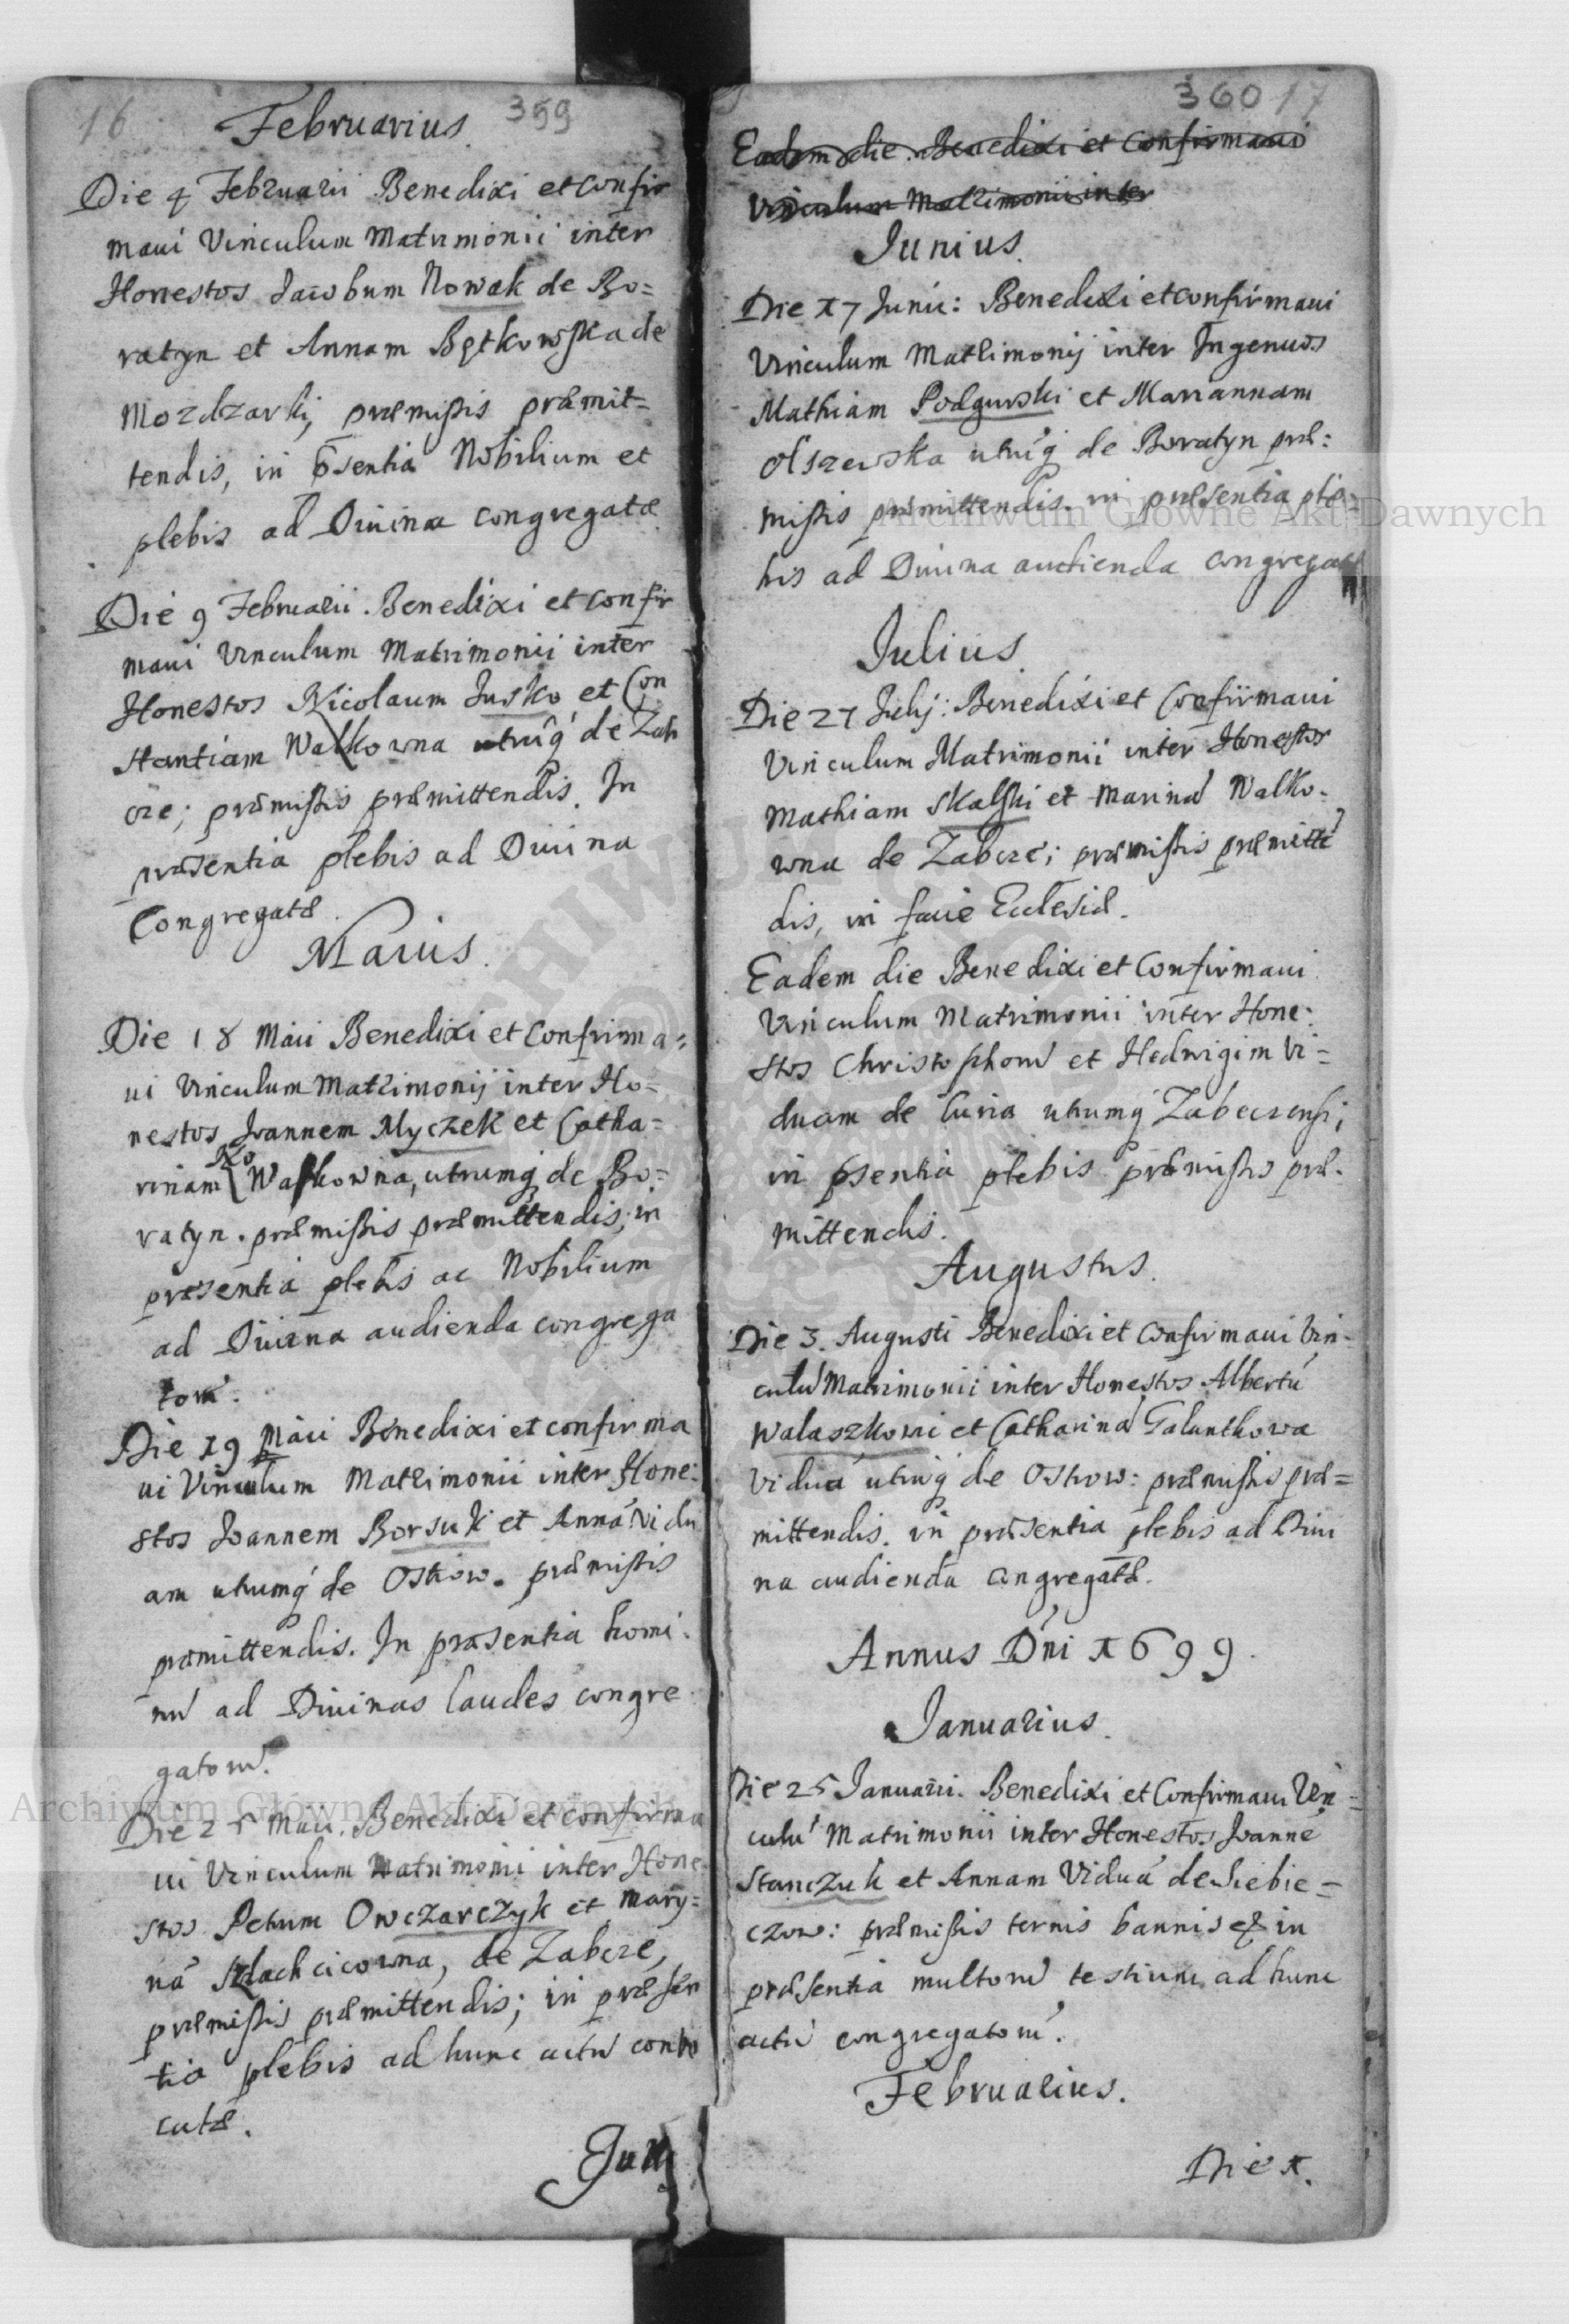 16
359
Februarius
Die 4 Februarii Benedixi et confir
maui Vinculum Matrimonii inter
Honestos Jacobum Nowak de Bo=
ratyn et Annam Bętkowska de
Mozdzarki, præmissis præmit=
tendis, in psentia Nobilium et
plebis ad Diuina congregatæ
Die 9 Februarii. Benedixi et confir
maui Vinculum Matrimonii inter
Honestos Nicolaum Jusko et Con
stantiam Walkowna utruq́ de Zab
cze; præmissis præmittendis. In
præsentia plebis ad Diuina
Congregatæ.
Maius.
Die 18 Maii Benedixi et Confirma=
ui Vinculum Matrimonij inter Ho=
nestos Joannem Myczek et Catha=
rinam Ko Walkowna, utrumq́ de Bo=
ratyn. præmissis præmittendis; in
præsentia plebis ac Nobilium
ad Diuina audienda congrega
torú.
Die 19 Maii Benedixi et confirma
ui Vinculum Matrimonii inter Hone=
stos Joannem Borsuk et Anná Vidu
am utrumq́ de Ostrow. præmissis
præmittendis. In præsentia homi=
nú ad Diuinas laudes congre
gatorú.
Die 25 Maii. Benedixi et confirma
ui Vinculum Matrimonii inter Hone
stos Petrum Owczarczyk et Mary=
ná Szlachcicowna, de Zabcze,
præmissis præmittendis; in præsen
tia plebis ad hunc actú conuo
catæ.
Jun
360 17
Eadem die Benedixi et Confirmaui
Vinculum Matrimonii inter
Junius.
Die 17 Junii: Benedixi et confirmaui
Vinculum Matrimonij inter Ingenuos
Mathiam Podgurski et Mariannam
Olszewska utruq́ de Boratyn præ=
missis præmittendis. in præsentia ple=
bis ad Diuina audienda congregatæ
Julius.
Die 27 Julij: Benedixi et Confirmaui
Vinculum Matrimonii inter Honestos
Mathiam Skalski et Mariná Walko=
wna de Zabcze; præmissis præmitté
dis, in facie Ecclesiæ.
Eadem die Benedixi et Confirmaui
Vinculum Matrimonii inter Hone=
stos Christophorú et Hedwigim Vi=
duam de Curia utrumq́ Zabczensi;
in psentia plebis præmissis præ=
mittendis.
Augustus.
Die 3. Augusti Benedixi et Confirmaui Vin=
culú Matrimonii inter Honestos Albertú
Walaszkowi et Catharinú Galantkowa
Viduá utruq́ de Ostrow: præmissis præ=
mittendis. in præsentia plebis ad Diui
na audienda congregatæ.
Annus Dńi 1699.
Januarius.
Die 25 Januarii. Benedixi et Confirmaui Vin=
culú Matrimonii inter Honestos Joanné
Stanczuk et Annam Viduá de Siebie=
czow: præmissis ternis bannis & in
præsentia multorú testium ad hunc
actú congregatorú.
Februarius.
Die 1.
Archiwum Główne Akt Dawnych
Archiwum Główne Akt Dawnych